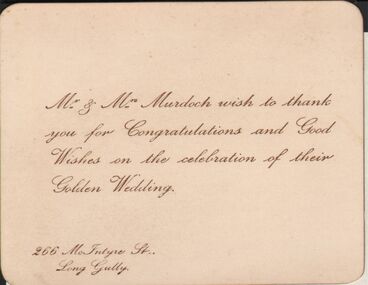 Mr & Mrs Murdoch wish to thank
you for Congratulations and Good
Wishes on the celebration of their
Golden Wedding.
266 McIntyre St..
Long Gully.